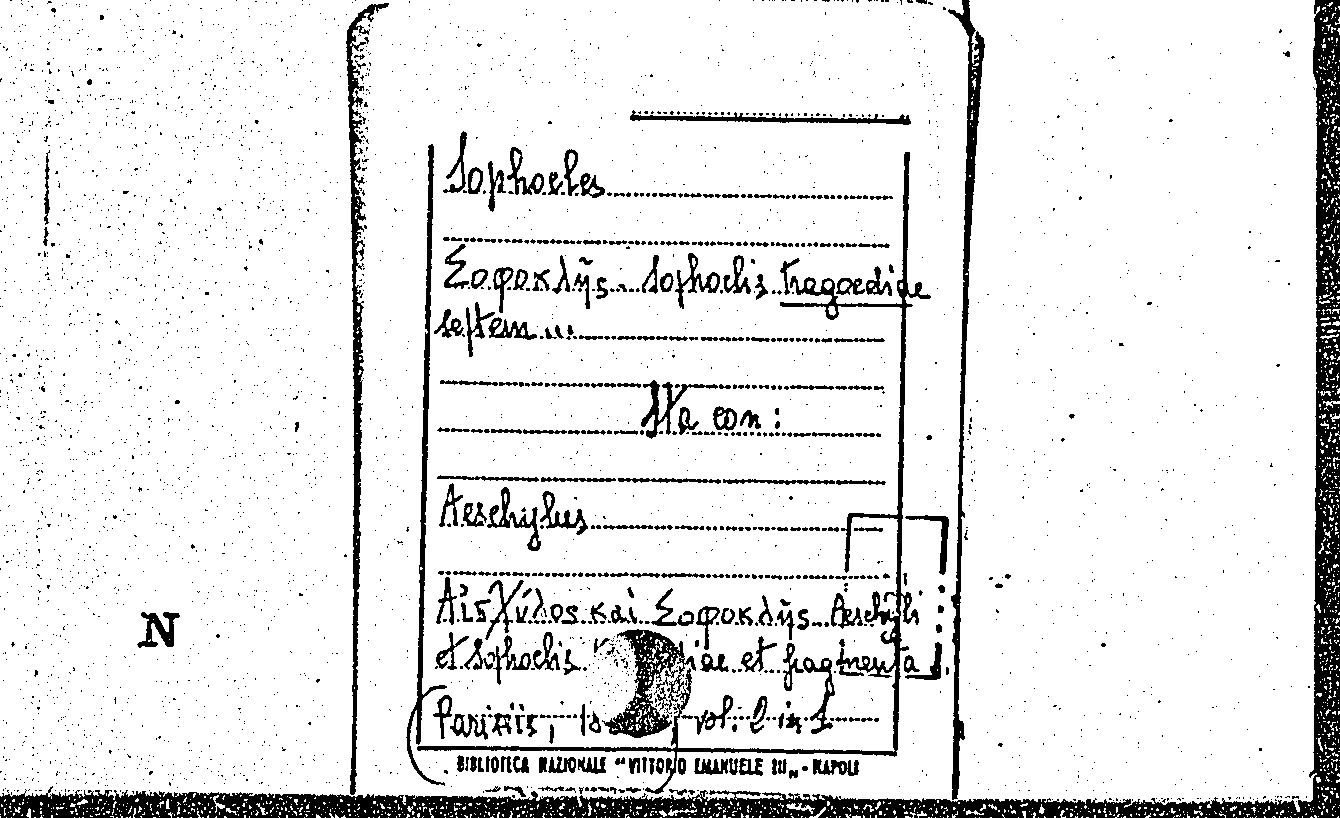 Sophocles
Σοφοκλῆς. Sophoclis tragoediae
septem...
Sta con:
Aeschylus
Αἰσχύλος καὶ Σοφοκλῆς. Aeschyli
et Sophoclis et fragmenta
Parisiis, vol. 2 in 1
BIBLIOTECA NAZIONALE "VITTORIO EMANUELE III„ - NAPOLI
N